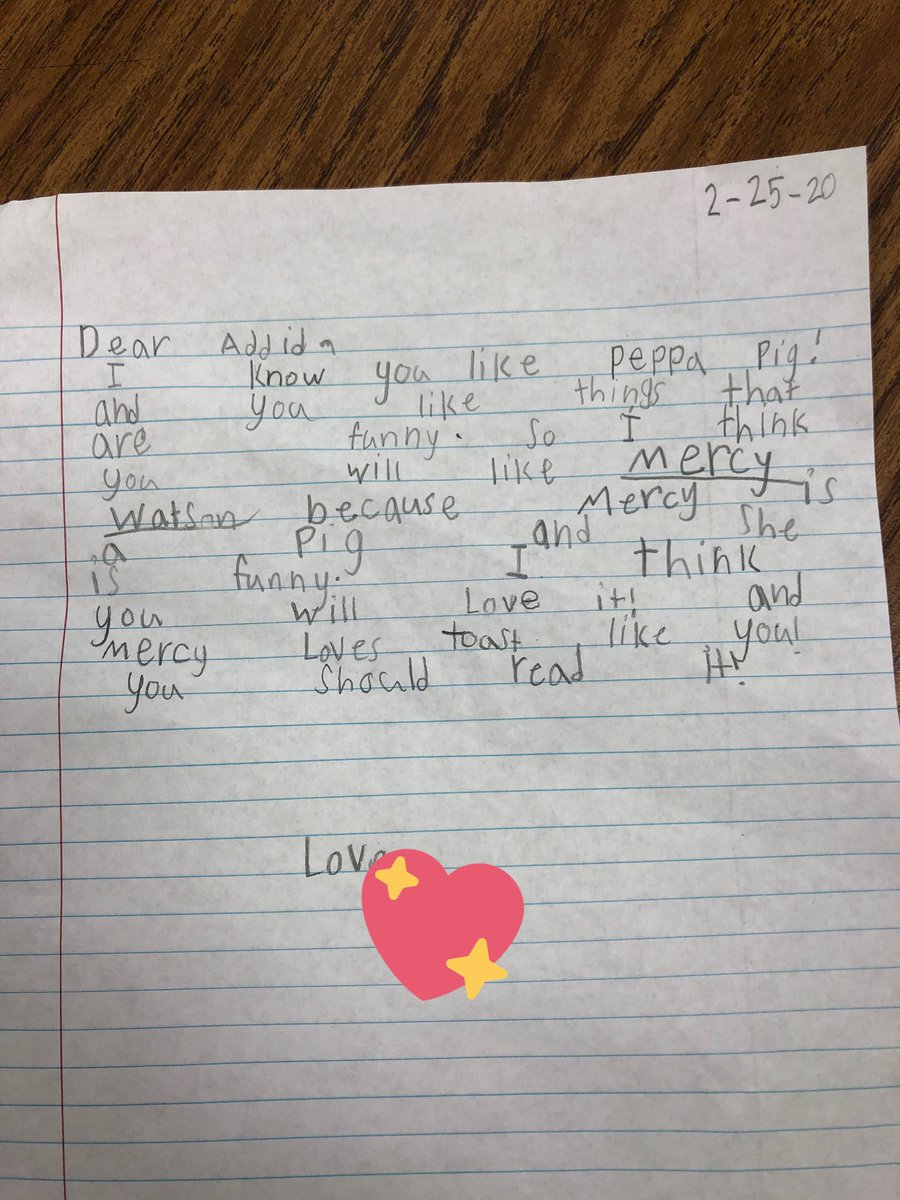 2-25-20
Dear Addid
I know you like peppa pig!
and you like things that
are funny. So I think
you will like Mercy
Watson because Mercy is
a Pig and She
is funny. I think
you will Love it! and
Mercy Loves toast like you!
you should read it!
Love